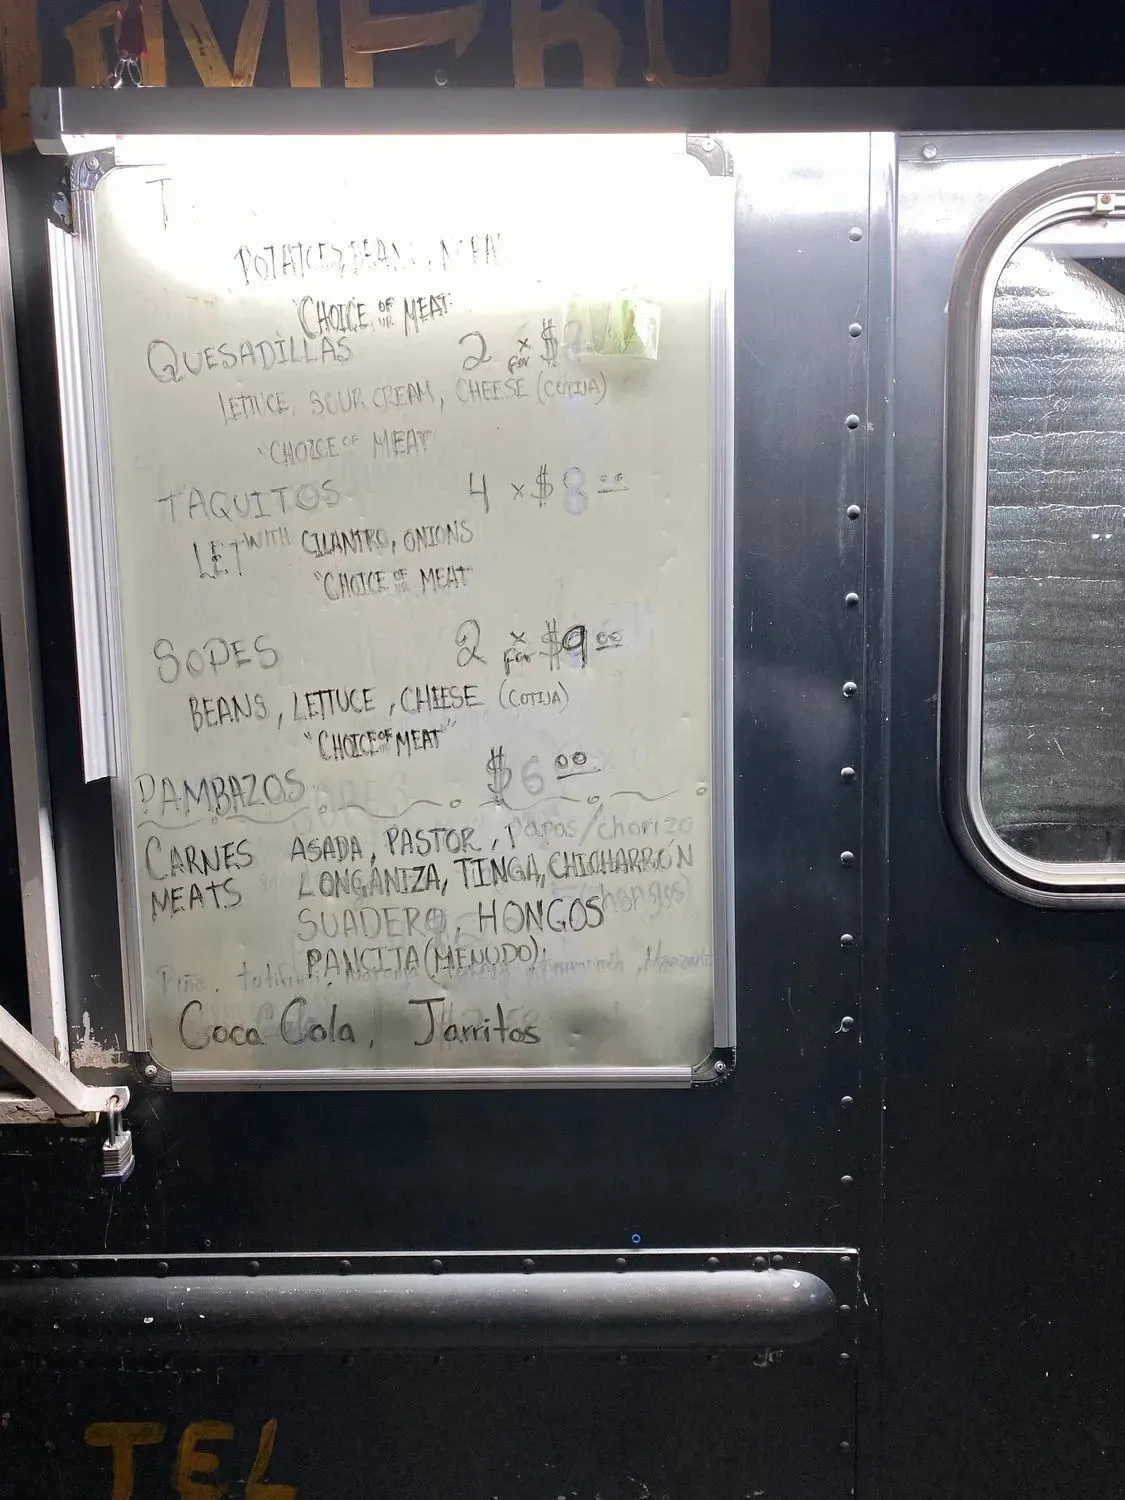 T
POTATOES, BEANS, MEAT
"CHOICE OF MEAT"
QUESADILLAS 2 x for $
LETTUCE, SOUR CREAM, CHEESE (COTIJA)
"CHOICE OF MEAT"
TAQUITOS 4 x $8.00
LET WITH CILANTRO, ONIONS
"CHOICE OF MEAT"
SOPES 2 x for $9.00
BEANS, LETTUCE, CHEESE (COTIJA)
"CHOICE OF MEAT"
PAMBAZOS $6.00
CARNES ASADA, PASTOR, Papas/chorizo
MEATS LONGANIZA, TINGA, CHICHARRÓN
SUADERO, HONGOS (hongos)
PANCITA (MENUDO)
Piña, tutifruti, Naranja, tamarindo, Manzana
Coca Cola, Jarritos
TEL